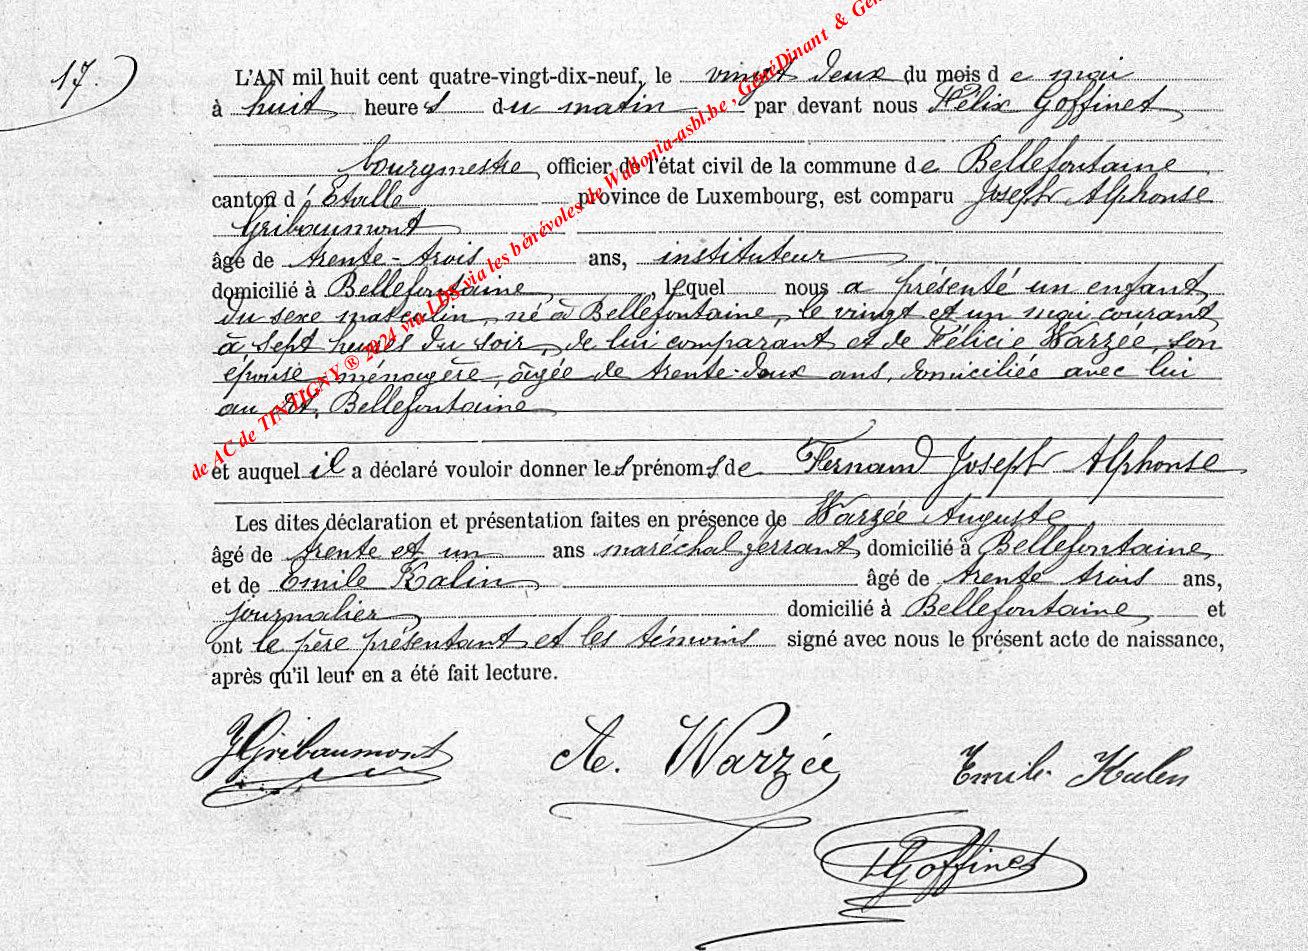 17.)
L'AN mil huit cent quatre-vingt-dix-neuf, le vingt deux du mois de mai
à huit heures du matin par devant nous Félix Goffinet
bourgmestre, officier de l'état civil de la commune de Bellefontaine
canton d'Etalle province de Luxembourg, est comparu Joseph Alphonse
Gribaumont
âgé de trente-trois ans, instituteur
domicilié à Bellefontaine, lequel nous a présenté un enfant
du sexe masculin, né à Bellefontaine, le vingt et un mai courant
à sept heures du soir, de lui comparant et de Félicie Warzée, son
épouse, ménagère, âgée de trente-deux ans, domiciliée avec lui
au dt, Bellefontaine
et auquel il a déclaré vouloir donner les prénoms de Fernand Joseph Alphonse
Les dites déclaration et présentation faites en présence de Warzée Auguste
âgé de trente et un ans maréchal ferrant, domicilié à Bellefontaine
et de Emile Kalin âgé de trente trois ans,
journalier, domicilié à Bellefontaine, et
ont le père présentant et les témoins signé avec nous le présent acte de naissance,
après qu'il leur en a été fait lecture.
JGribaumont
A. Warzée
Emile Kalen
Goffinet
de AC de TINTIGNY ® 2024 via LDS via les bénévoles de Wallonia-asbl.be , GénéDinant & Gén